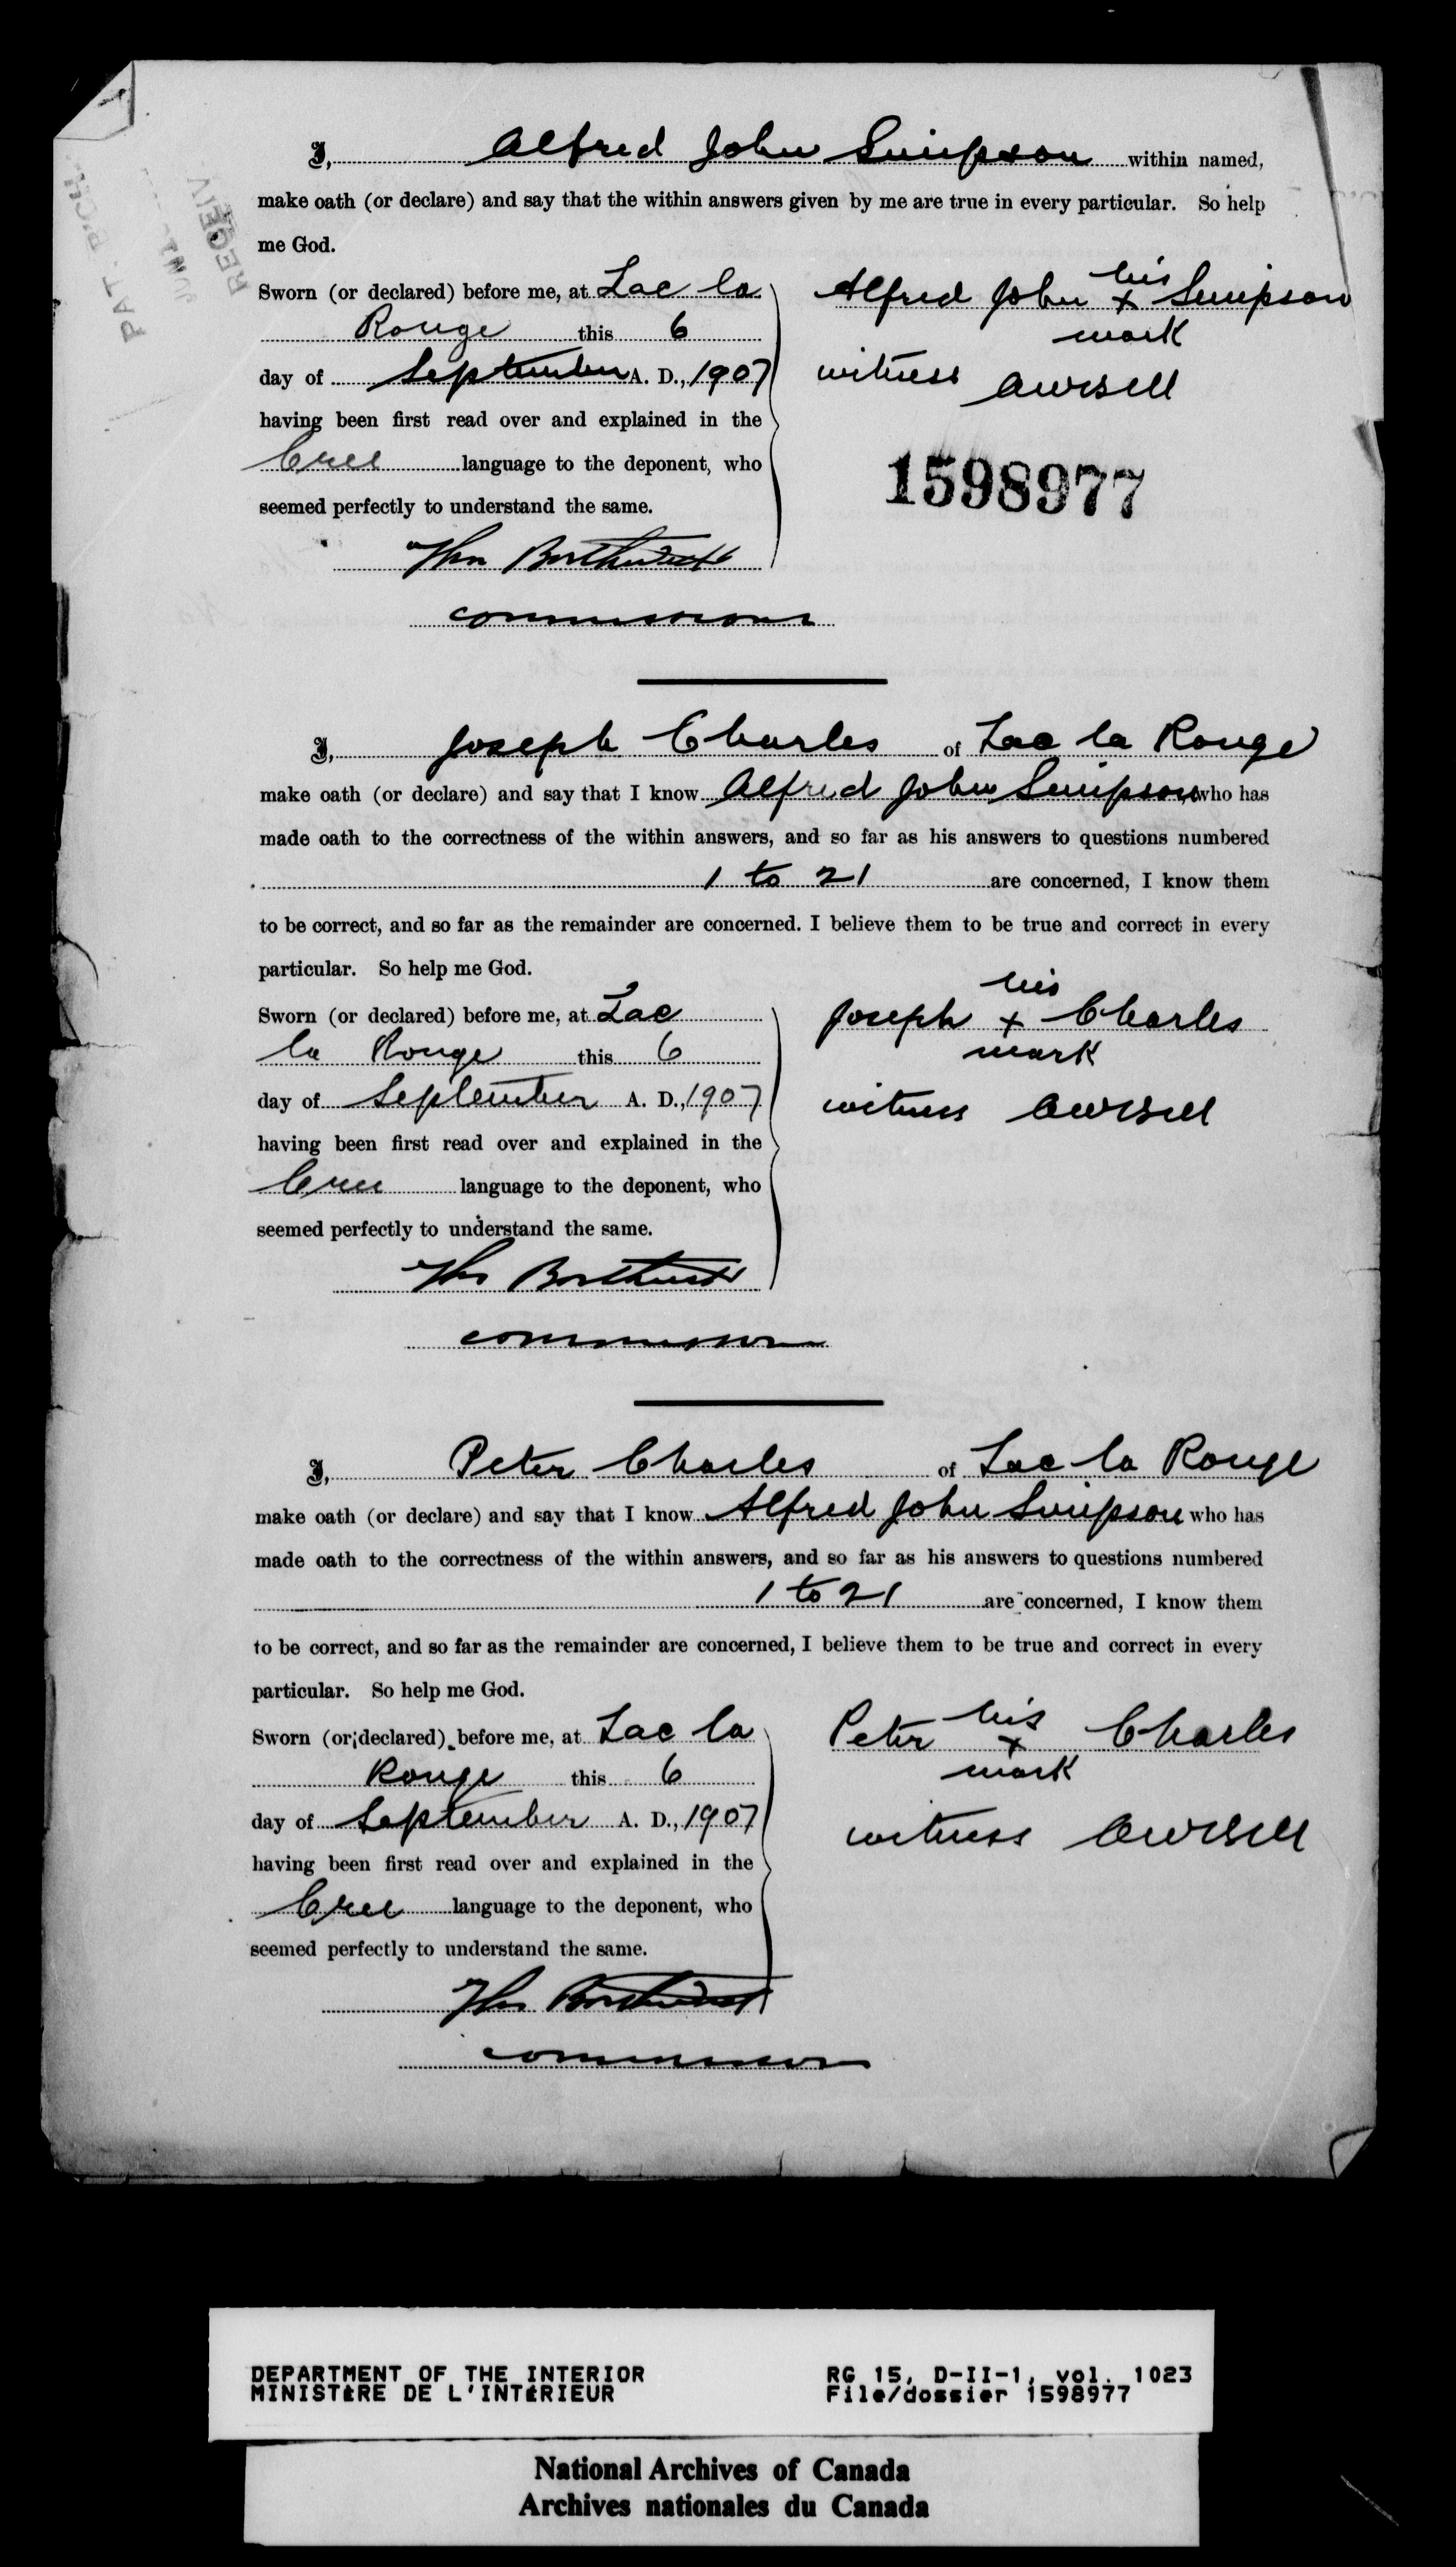 I, Alfred John Simpson within named,
make oath (or declare) and say that the within answers given by me are true in every particular. So help
me God.
Sworn (or declared) before me, at Lac la
Rouge this 6
day of September A. D., 1907
having been first read over and explained in the
Cree language to the deponent, who
seemed perfectly to understand the same.
Thos Borthwick
commissioner
Alfred John his x Simpson
mark
witness
1598977
PAT.
JUN
RECEIV
I, Joseph Charles of Lac la Rouge
make oath (or declare) and say that I know Alfred John Simpson who has
made oath to the correctness of the within answers, and so far as his answers to questions numbered
1 to 21 are concerned, I know them
to be correct, and so far as the remainder are concerned. I believe them to be true and correct in every
particular. So help me God.
Sworn (or declared) before me, at Lac
la Rouge this 6
day of September A. D., 1907
having been first read over and explained in the
Cree language to the deponent, who
seemed perfectly to understand the same.
Thos Borthwick
commissioner
Joseph his x Charles
mark
witness
I, Peter Charles of Lac la Rouge
make oath (or declare) and say that I know Alfred John Simpson who has
made oath to the correctness of the within answers, and so far as his answers to questions numbered
1 to 21 are concerned, I know them
to be correct, and so far as the remainder are concerned, I believe them to be true and correct in every
particular. So help me God.
Sworn (or declared) before me, at Lac la
Rouge this 6
day of September A. D., 1907
having been first read over and explained in the
Cree language to the deponent, who
seemed perfectly to understand the same.
Thos Borthwick
commissioner
Peter his x Charles
mark
witness
DEPARTMENT OF THE INTERIOR
MINISTÈRE DE L'INTÉRIEUR
RG 15, D-II-1, vol. 1023
File/dossier 1598977
National Archives of Canada
Archives nationales du Canada